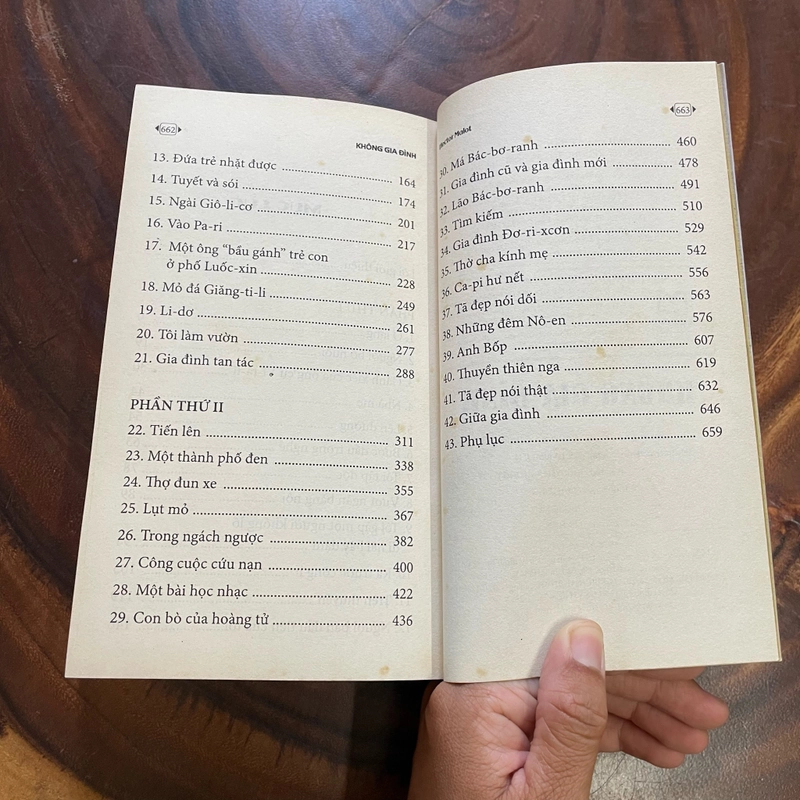 662
KHÔNG GIA ĐÌNH
13. Đứa trẻ nhặt được ........ 164
14. Tuyết và sói ........ 174
15. Ngài Giô-li-cơ ........ 201
16. Vào Pa-ri ........ 217
17. Một ông “bầu gánh” trẻ con
ở phố Luốc-xin ........ 228
18. Mỏ đá Giăng-ti-li ........ 249
19. Li-dơ ........ 261
20. Tôi làm vườn ........ 277
21. Gia đình tan tác ........ 288
PHẦN THỨ II
22. Tiến lên ........ 311
23. Một thành phố đen ........ 338
24. Thợ đun xe ........ 355
25. Lụt mỏ ........ 367
26. Trong ngách ngược ........ 382
27. Công cuộc cứu nạn ........ 400
28. Một bài học nhạc ........ 422
29. Con bò của hoàng tử ........ 436
663
Hector Malot
30. Má Bác-bơ-ranh ........ 460
31. Gia đình cũ và gia đình mới ........ 478
32. Lão Bác-bơ-ranh ........ 491
33. Tìm kiếm ........ 510
34. Gia đình Đơ-ri-xcơn ........ 529
35. Thờ cha kính mẹ ........ 542
36. Ca-pi hư nết ........ 556
37. Tã đẹp nói dối ........ 563
38. Những đêm Nô-en ........ 576
39. Anh Bốp ........ 607
40. Thuyền thiên nga ........ 619
41. Tã đẹp nói thật ........ 632
42. Giữa gia đình ........ 646
43. Phụ lục ........ 659